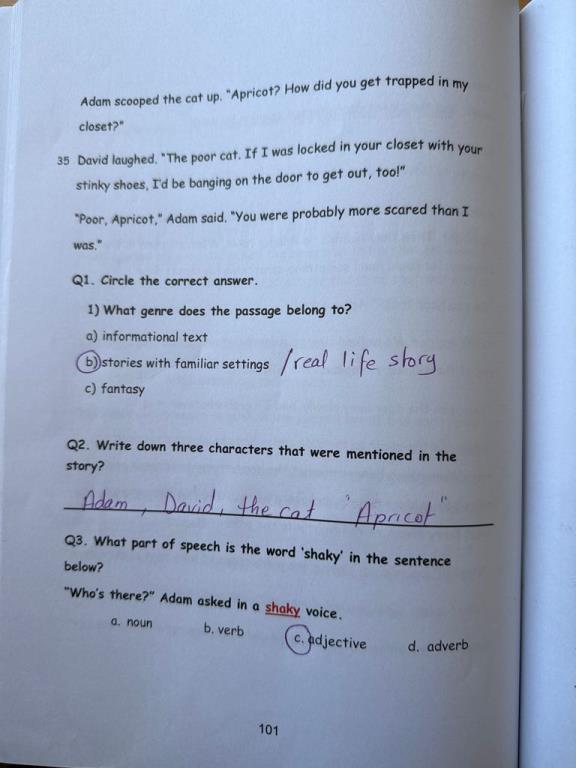 Adam scooped the cat up. "Apricot? How did you get trapped in my
closet?"
35 David laughed. "The poor cat. If I was locked in your closet with your
stinky shoes, I'd be banging on the door to get out, too!"
"Poor, Apricot," Adam said. "You were probably more scared than I
was."
Q1. Circle the correct answer.
1) What genre does the passage belong to?
a) informational text
b) stories with familiar settings /real life story
c) fantasy
Q2. Write down three characters that were mentioned in the
story?
Adam, David, the cat "Apricot"
Q3. What part of speech is the word 'shaky' in the sentence
below?
"Who's there?" Adam asked in a shaky voice.
a. noun b. verb c. adjective d. adverb
101